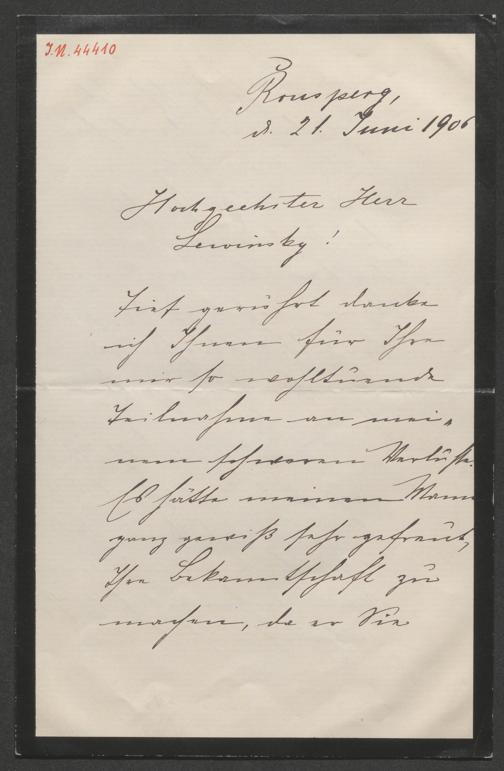 I.N. 44410
Ronsperg,
d. 21. Juni 1906
Hochgeehrter Herr
Lewinsky!
Tief gerührt danke
ich Ihnen für Ihre
mir so wohltuende
Teilnahme an mei„
nem schweren Verluste.
Es hätte meinen Mann
ganz gewiß sehr gefreut,
Ihre Bekanntschaft zu
machen, da er Sie